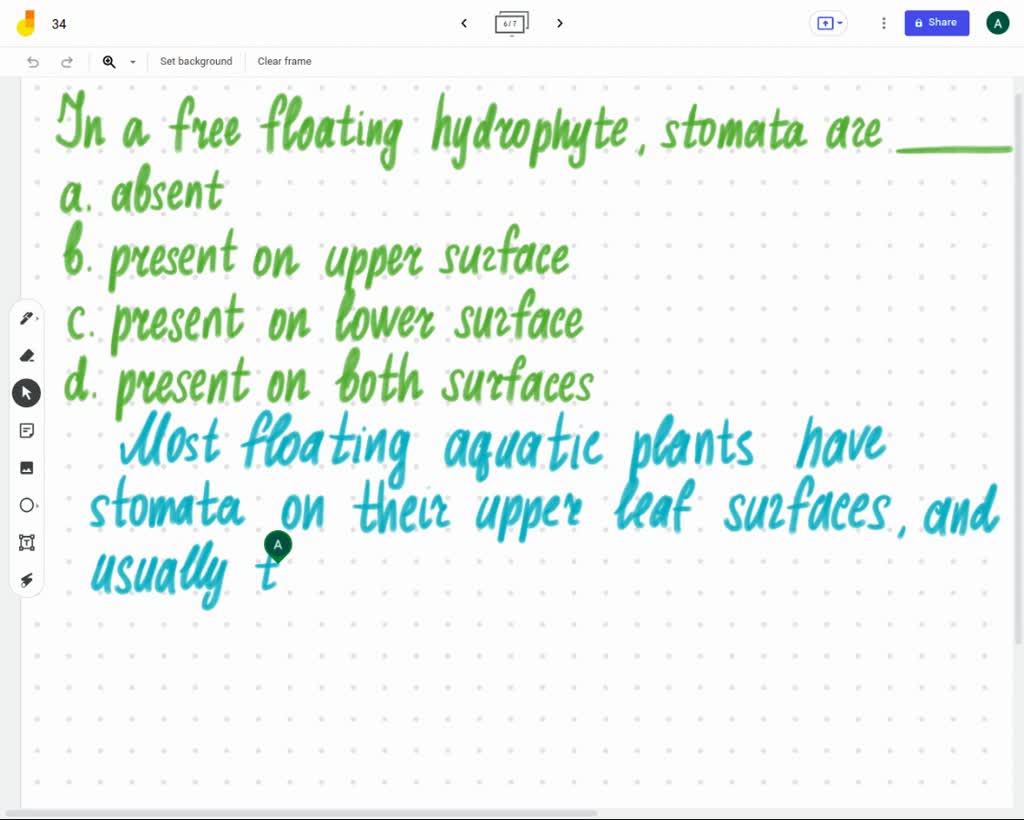 34
6/7
Share
A
Set background
Clear frame
In a free floating hydrophyte, stomata are ______
a. absent
b. present on upper surface
c. present on lower surface
d. present on both surfaces
Most floating aquatic plants have
stomata on their upper leaf surfaces, and
A
usually t